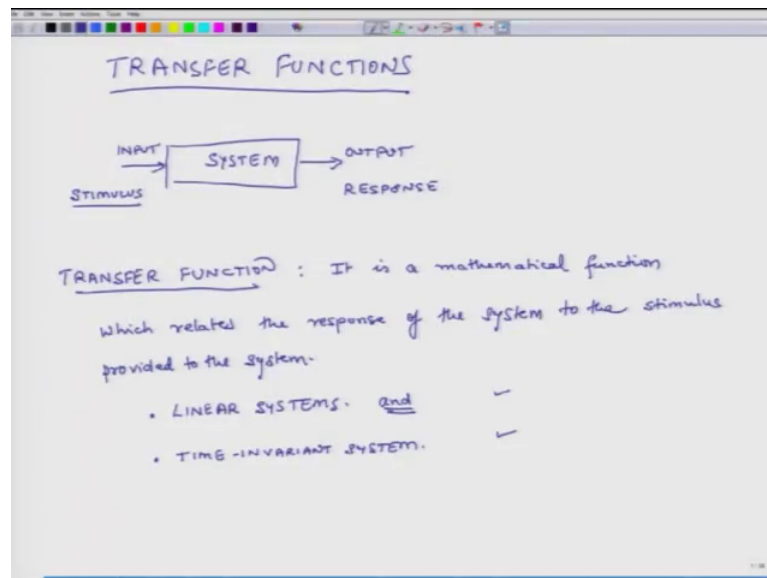 TRANSFER FUNCTIONS
INPUT SYSTEM OUTPUT
STIMULUS RESPONSE
TRANSFER FUNCTION : It is a mathematical function
which related the response of the system to the stimulus
provided to the system.
• LINEAR SYSTEMS. and
• TIME-INVARIANT SYSTEM.